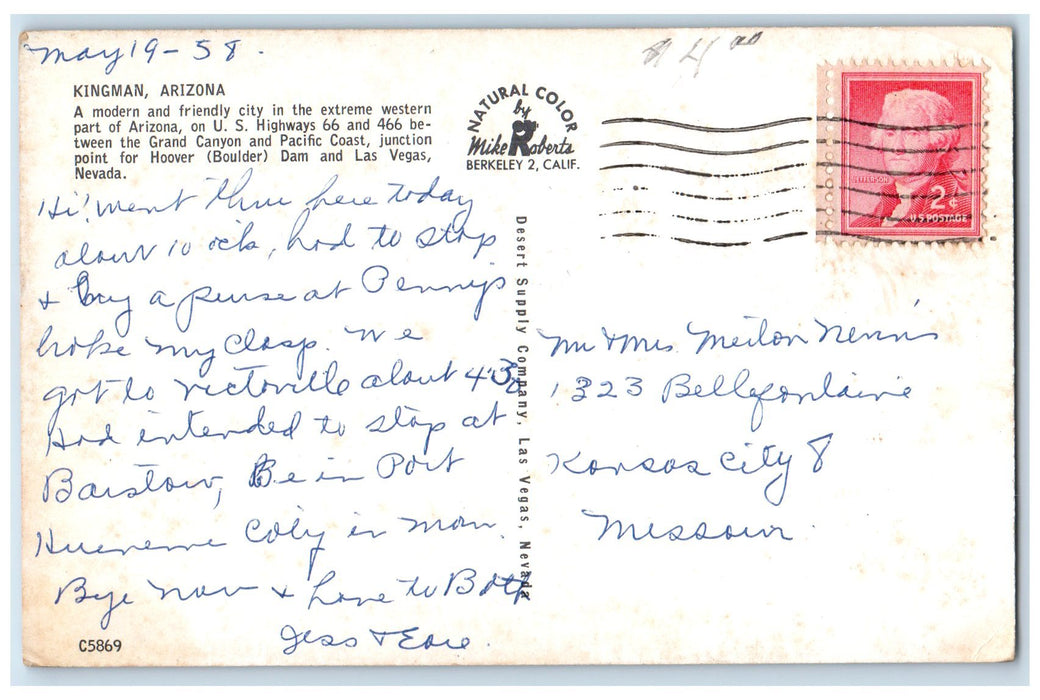 May 19 - 58.
$4.00
KINGMAN, ARIZONA
A modern and friendly city in the extreme western
part of Arizona, on U. S. Highways 66 and 466 be-
tween the Grand Canyon and Pacific Coast, junction
point for Hoover (Boulder) Dam and Las Vegas,
Nevada.
NATURAL COLOR
by
Mike Roberts
BERKELEY 2, CALIF.
JEFFERSON
2¢
U.S. POSTAGE
Hi! Went thru here today
about 10 oclk, had to stop
& buy a purse at Penny's
broke my clasp. We
got to Victorville about 4:30
Had intended to stop at
Barstow, Be in Port
Hueneme Calif in morn.
Bye now & love to Both
Jess &
C5869
Desert Supply Company, Las Vegas, Nevada
Mr & Mrs
1323 Bellefontaine
Kansas City 8
Missouri